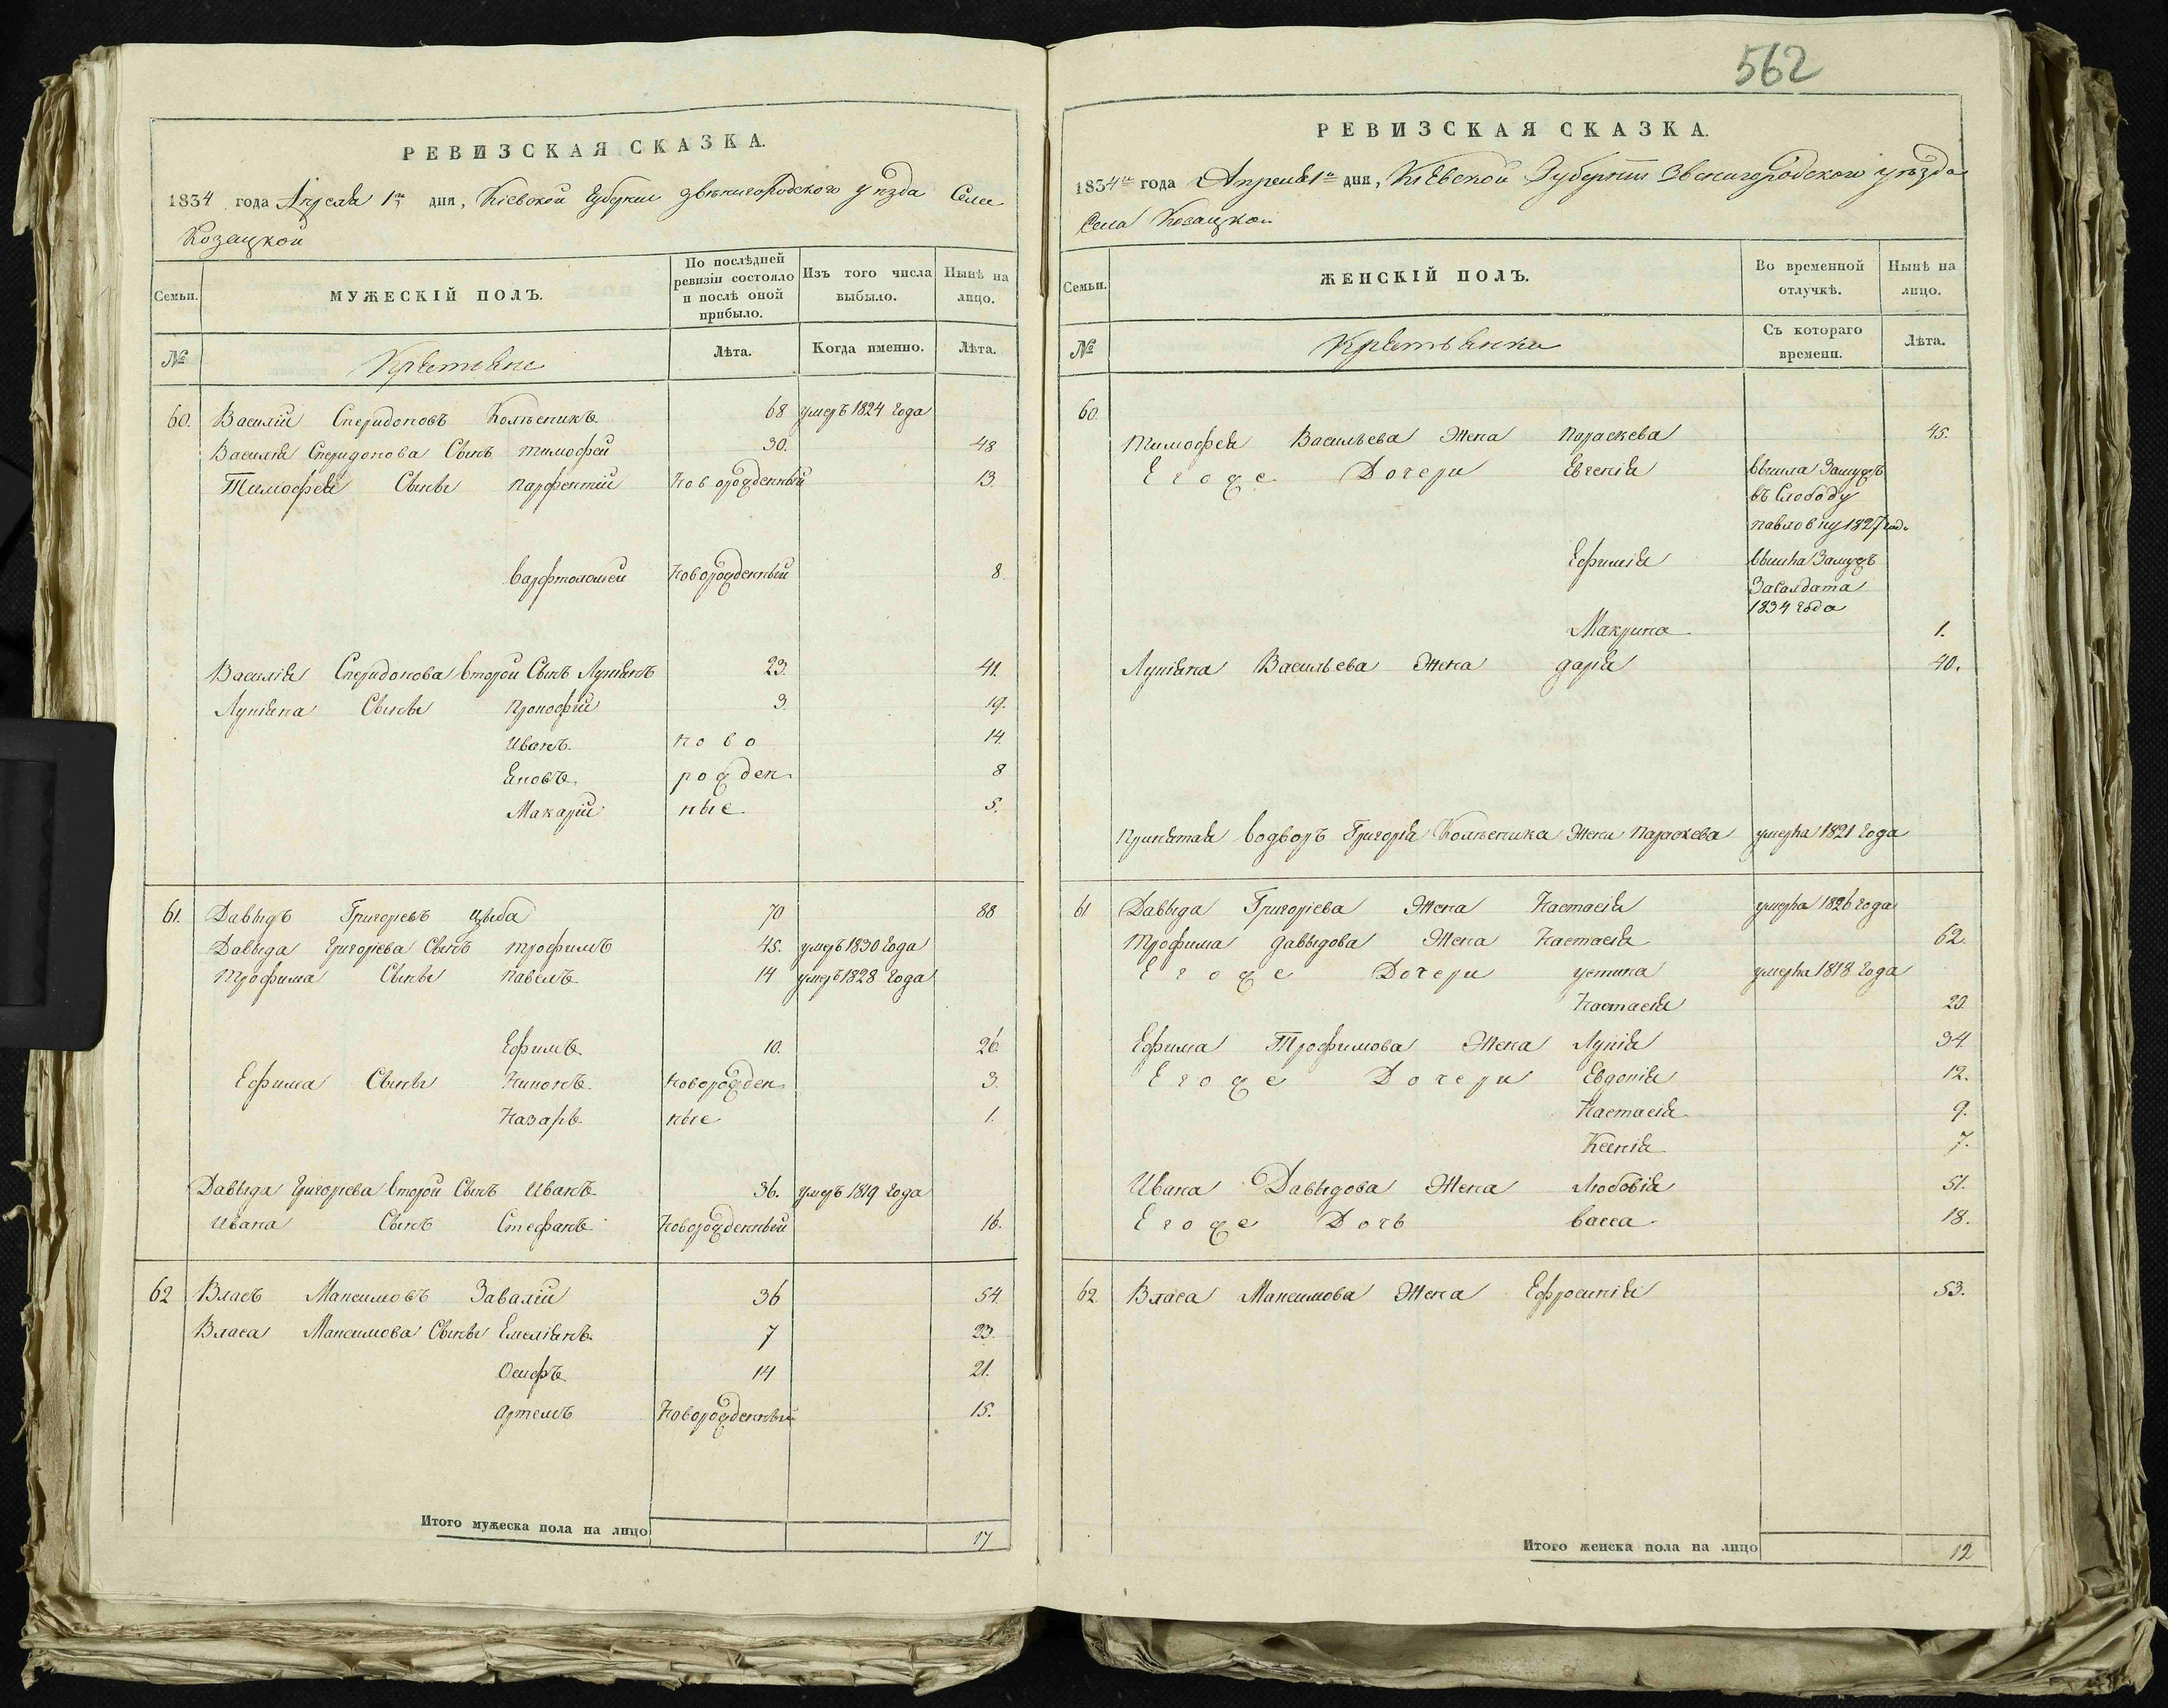 562
РЕВИЗСКАЯ СКАЗКА.
1834 года Апреля 1го дня, Кіевской Губерніи Звѣнигородского уѣзда Села
Козацкой
Семьи.
МУЖЕСКІЙ ПОЛЪ.
По послѣдней ревизіи состояло и послѣ оной прибыло.
Изъ того числа выбыло.
Нынѣ на лицо.
№
Крестяне
Лѣта.
Когда именно.
Лѣта.
60. Василій Спиридоновъ Колѣсникъ 68 умеръ 1824 года
Василія Спиридонова Сынъ тимофей 30. 48
Тимофея Сынъ парфентій новорожденный 13.
варфтоломей новорожденный 8.
Василія Спиридонова второй Сынъ Лукіянъ 23. 41.
Лукіяна Сыны прокофій 3. 19.
Иванъ ново 14.
Яковъ рожден 8
Макарій ные 5.
61. Давыдъ Григорьевъ цыба 70 88
Давыда Григорьева Сынъ трофимъ 45. умеръ 1830 года
трофима Сыны павелъ 14 умеръ 1828 года
Ефимъ 10. 26.
Ефима Сыны Никонъ новорожден 3.
Назаръ ные 1.
Давыда Григорьева второй Сынъ Иванъ 36. умеръ 1819 года
Ивана Сынъ Стефанъ новорожденный 16.
62 Власъ Максимовъ Завалій 36 54.
Власа Максимова Сыны Емеліянъ 7 23.
Осифъ 14 21.
Артемъ новорожденный 15.
Итого мужеска пола на лицо 17
РЕВИЗСКАЯ СКАЗКА.
1834го года Апреля 1го дня, Кіевской Губерніи Звенигородского уѣзда
Села Козацкой
Семьи.
ЖЕНСКІЙ ПОЛЪ.
Во временной отлучкѣ.
Нынѣ на лицо.
№
Крестьянки
Съ котораго времени.
Лѣта.
60.
тимофея Васильева Жена параскева 45.
Егоже Дочери Евгенія вышла Замужъ
въ Слободу
павловку 1827 год.
Ефимія вышла Замужъ
За Салдата
1834 года
Макрина 1.
Лукіяна Васильева Жена дарія 40.
принятая водворъ Григорія Колѣсника Жена параскева умерла 1821 года
61 Давыда Григоріева Жена Настасія умерла 1826 года
трофима давыдова Жена Настасія 62.
Егоже Дочери устина умерла 1818 года
Настасія 20.
Ефима Трофимова Жена Лукія 34
Егоже Дочери Евдокія 12.
Настасія 9.
Ксенія 7.
Ивана Давыдова Жена Любовія 51.
Егоже Дочь васса 18.
62. Власа Максимова Жена Ефросинія 53.
Итого женска пола на лицо 12